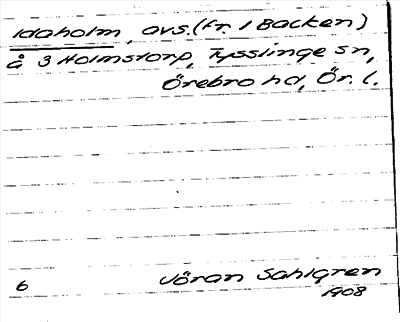 Idaholm, avs. (fr. 1 Backen)
å 3 Holmstorp, Tysslinge sn,
Örebro hd, Ör. l.
6 Jöran Sahlgren
1908